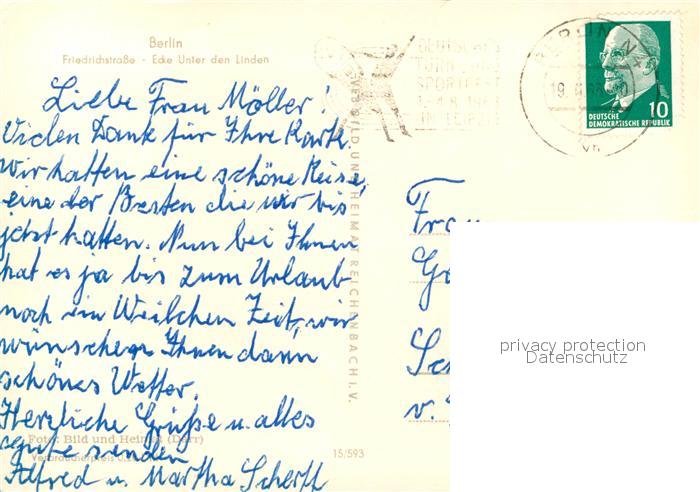 Berlin
Friedrichstraße - Ecke Unter den Linden
DEUTSCHES
TURN- UND
SPORTFEST
1.-4.8.1963
IN LEIPZIG
BERLIN N4
19.6.63
vn
10
DEUTSCHE
DEMOKRATISCHE REPUBLIK
Liebe Frau Möller!
Vielen Dank für Ihre Karte.
wir hatten eine schöne Reise,
eine der Besten die wir bis
jetzt hatten. Nun bei Ihnen
hat es ja bis zum Urlaub
noch ein Weilchen Zeit, wir
wünschen Ihnen dann
schönes Wetter.
Herzliche Grüße u. alles
gute senden
Alfred u. Martha Scherff
Foto: Bild und Heimat (Dörr)
Verbraucherpreis
15/593
BILD UND HEIMAT REICHENBACH I. V.
Frau
Sch
v.
privacy protection
Datenschutz